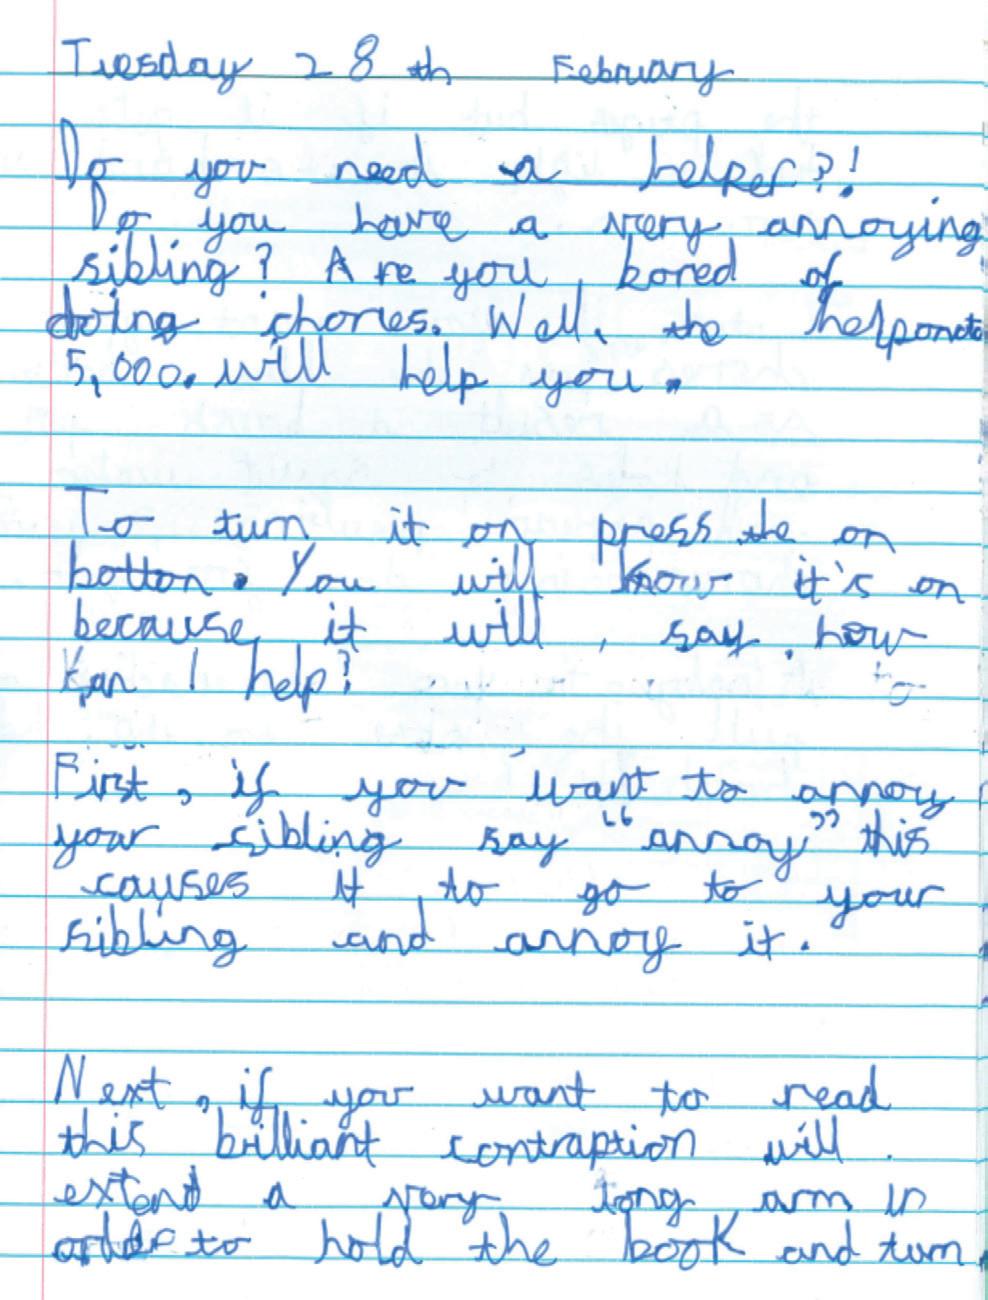 Tuesday 28th February
Do you need a helper?!
Do you have a very annoying
sibling? Are you bored of
doing chories. Well, the helponate
5,000. will help you.
To turn it on press the on
botton. You will know it's on
because it will, say, how
kan I help?
to
First, if you want to annoy
your sibling say "annoy" this
causes it to go to your
sibling and annoy it.
Next, if you want to read
this brilliant contraption will
extend a very long arm in
order to hold the book and turn